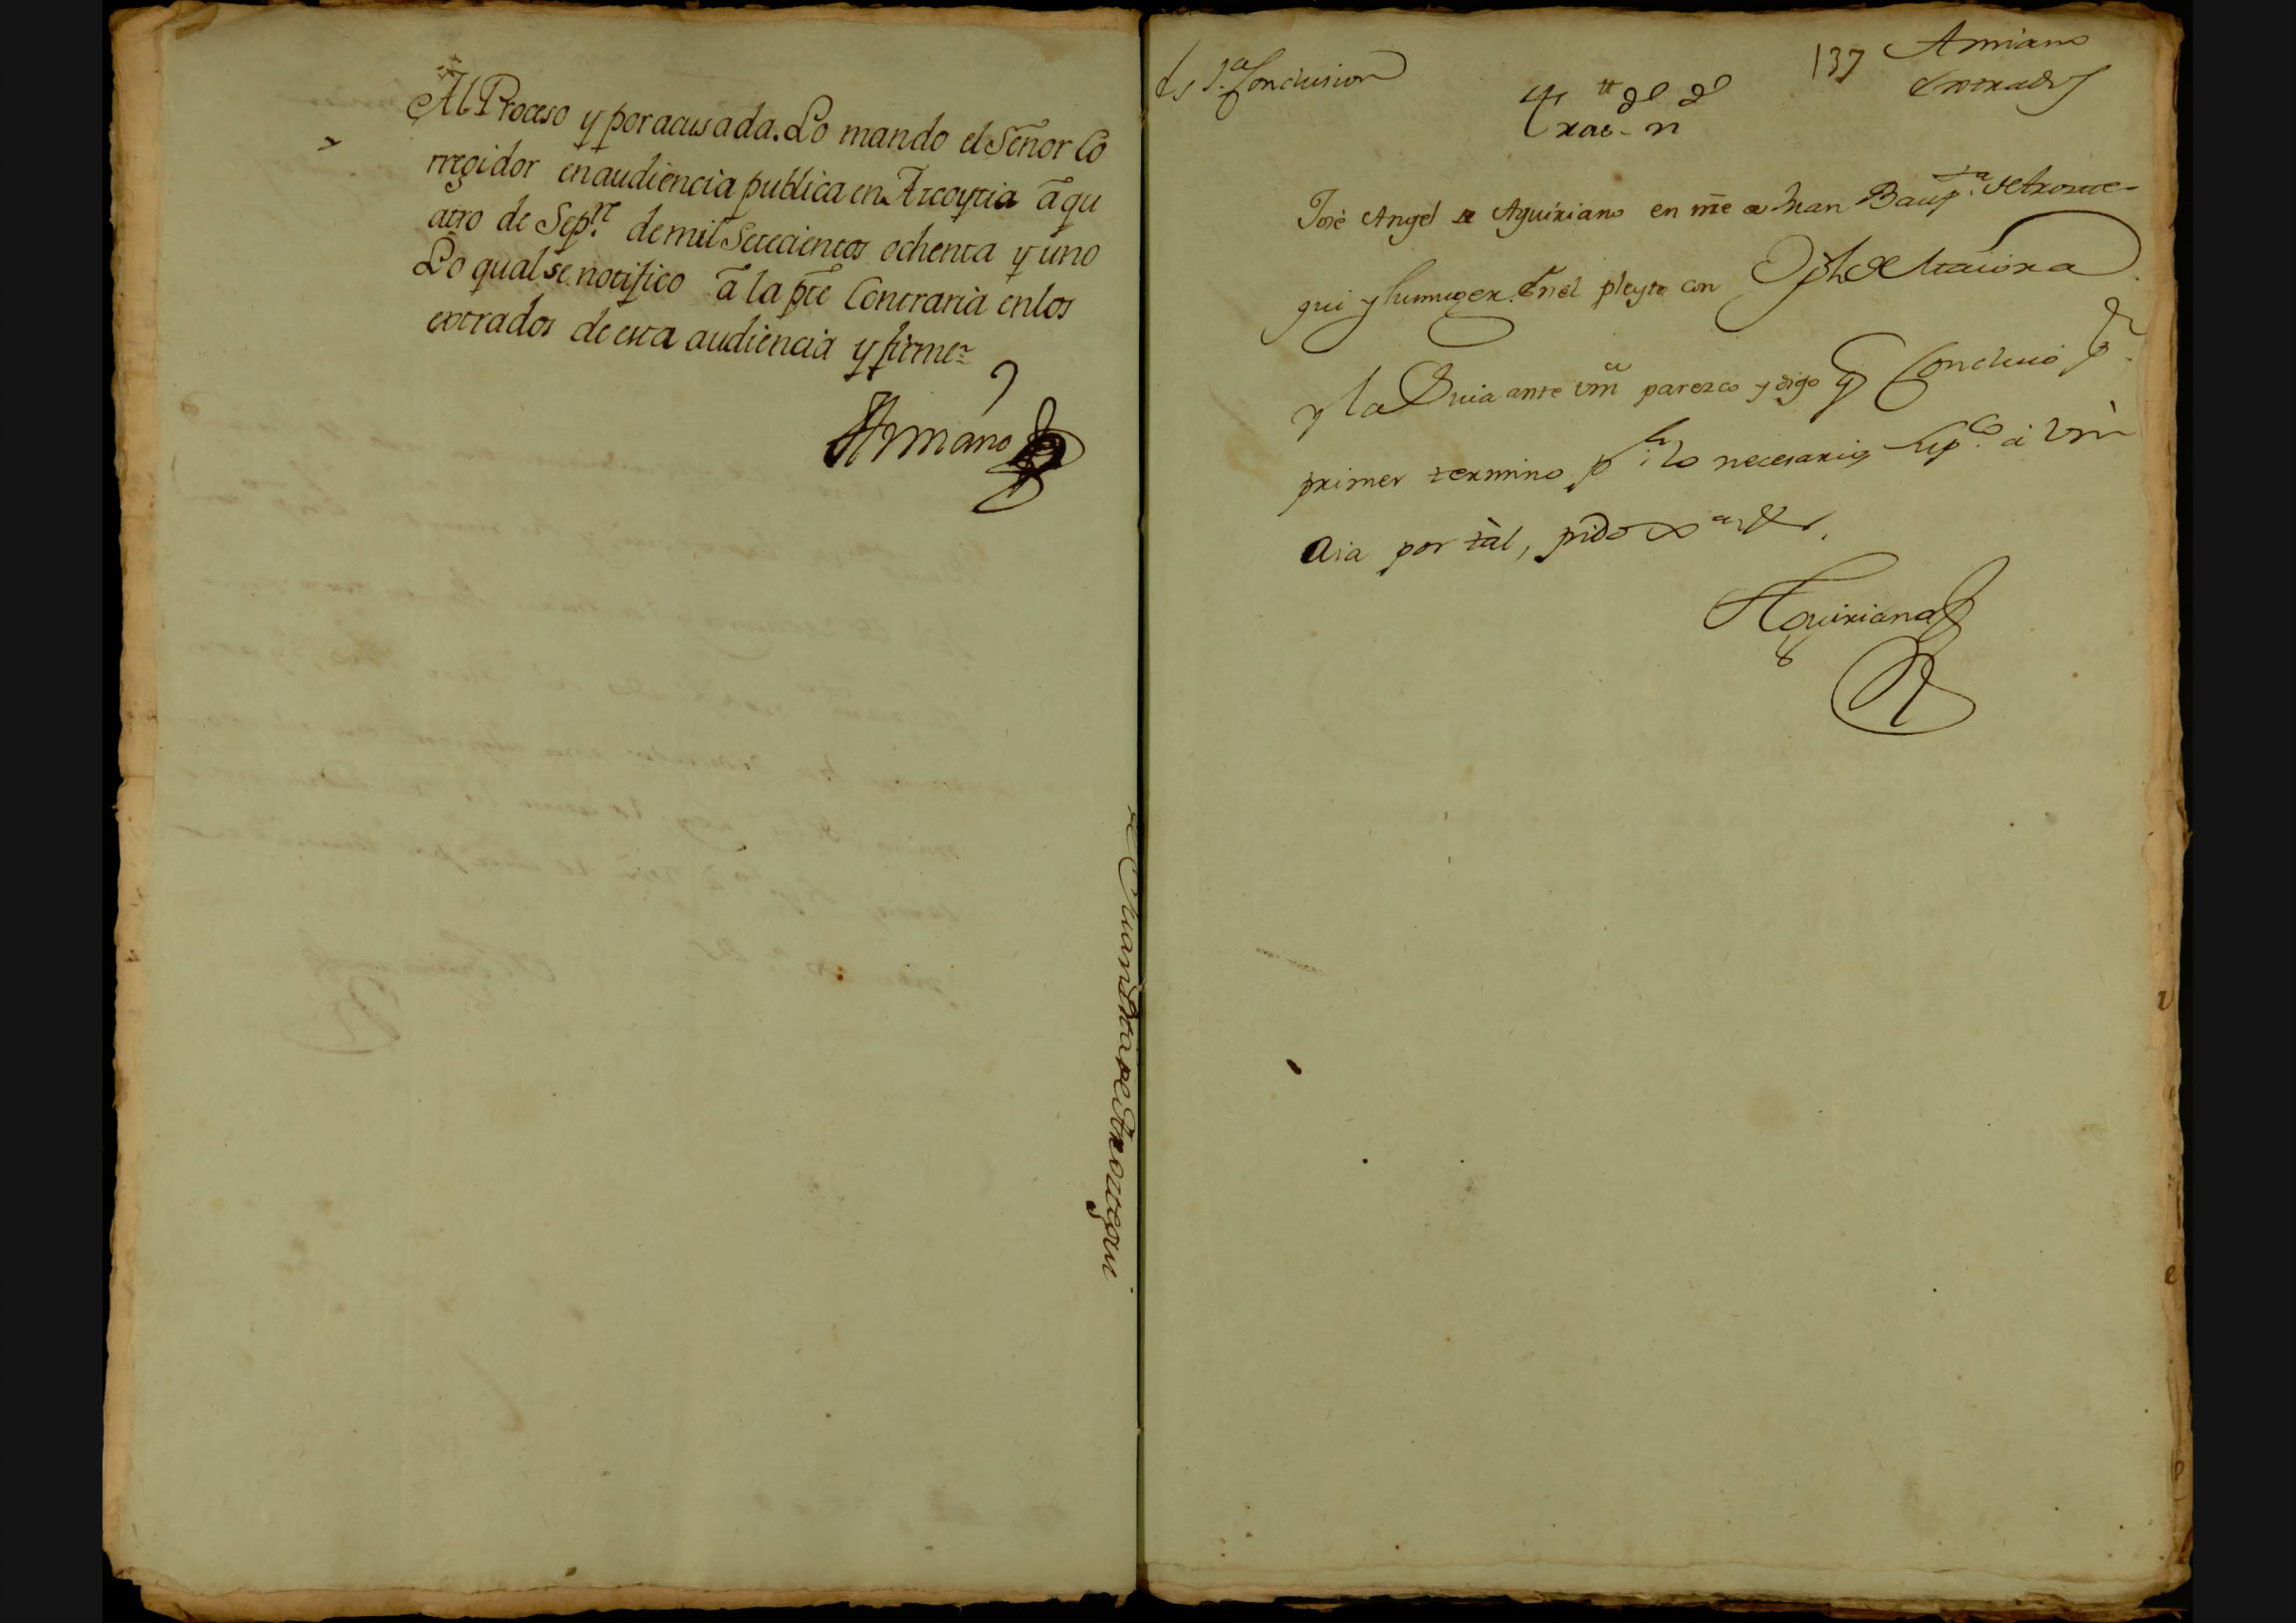 Al Proceso y por acusada. Lo mando el Señor Co
rregidor en audiencia publica en Azcoytia â qu
atro de Sep.re de mil Setecientos ochenta y uno
Lo qual se notifico â la pte Contraria en los
extrados de esta audiencia y firme
Armano
de Juan Bta de Arozegui
1.a Conclusion
137 Armano
extrados
José Angel de Aguiriano en nre de Juan Baup.ta de Aroze-
gui y su muger. En el pleyto con Jph de Alzaiona
y la suia ante vm parezco y digo q Concluió
primer termino p lo necesario, Sup.co à Vm
aia por tál, pido
Aguiriano